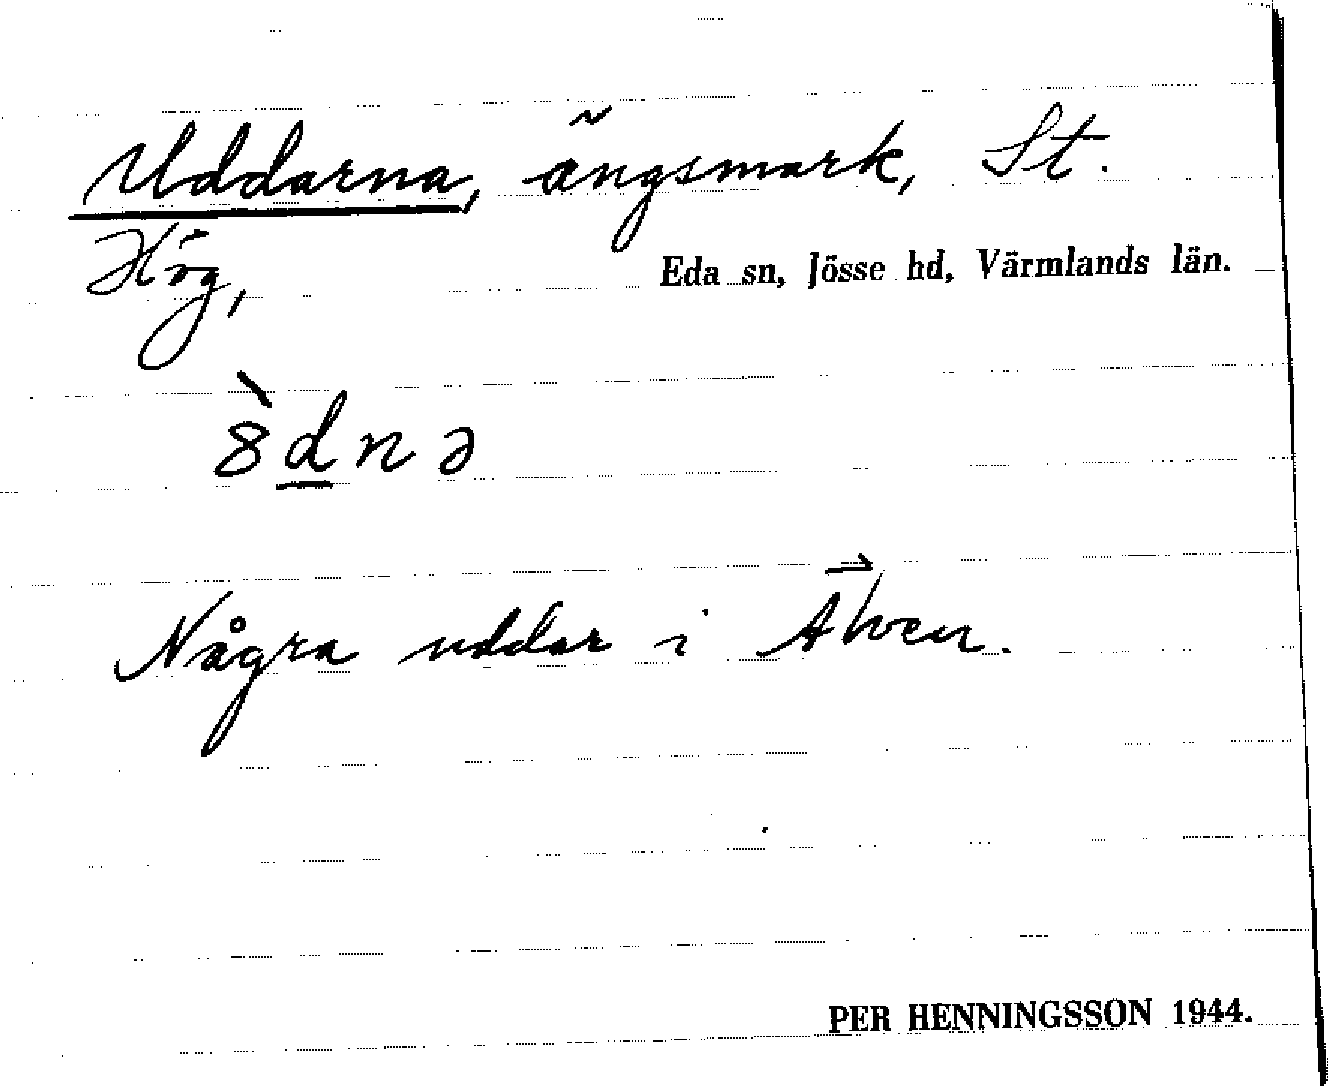 Uddarna, ängsmark, St.
Hög,
Eda sn, Jösse hd, Värmlands län.
8̀d̲nə
Några uddar i Älven.
PER HENNINGSSON 1944.